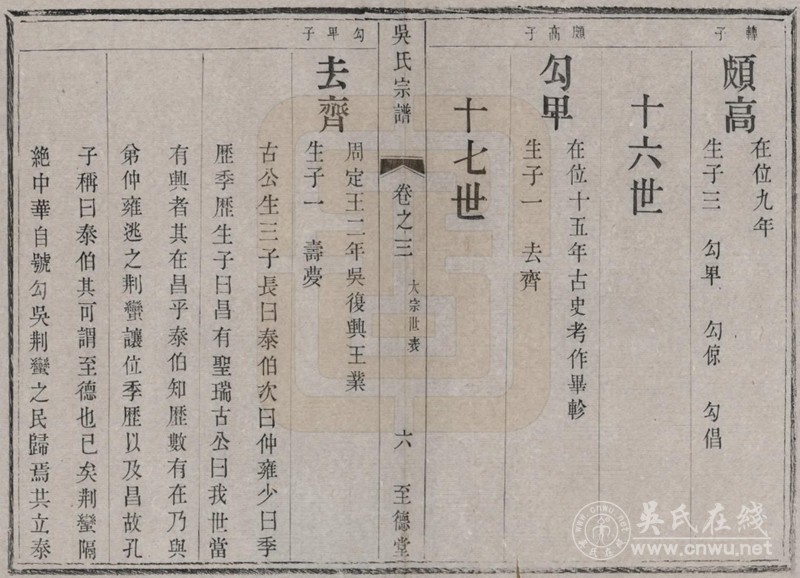 轉子
頗高
在位九年
生子三 勾畢 勾倞 勾倡
十六世
頗高子
勾畢
在位十五年古史考作畢軫
生子一 去齊
十七世
吳氏宗譜 卷之三 大宗世表 六 至德堂
勾畢子
去齊
周定王二年吳復興王業
生子一 壽夢
古公生三子長曰泰伯次曰仲雍少曰季
歷季歷生子曰昌有聖瑞古公曰我世當
有興者其在昌乎泰伯知歷數有在乃與
弟仲雍逃之荆蠻讓位季歷以及昌故孔
子稱曰泰伯其可謂至德也已矣荆蠻隔
絶中華自號勾吳荆蠻之民歸焉共立泰
吳氏在线
www.cnwu.net